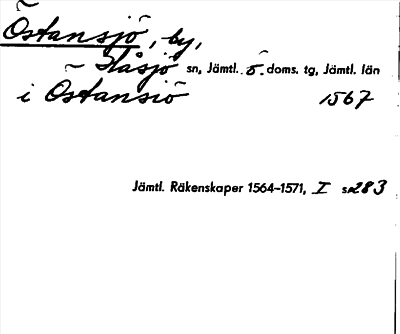 Östansjö, by,
Håsjö sn, Jämtl. ö. doms. tg, Jämtl. län
i Östansiö 1567
Jämtl. Räkenskaper 1564-1571, I s. 283